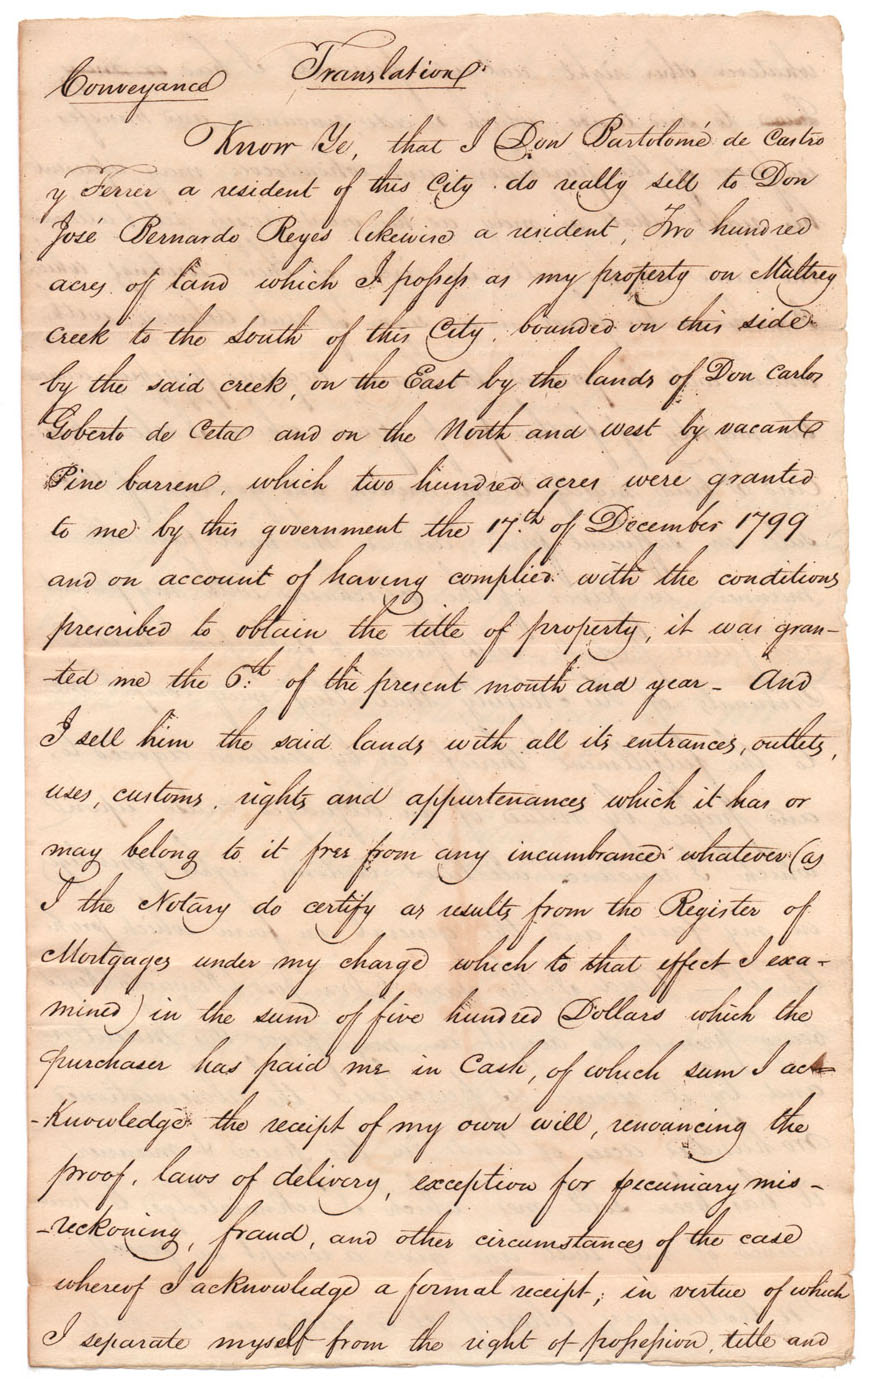 Conveyance Translation
Know Ye, that I Don Bartolomé de Castro
y Ferrer a resident of this City do really sell to Don
José Bernardo Reyes likewise a resident, Two hundred
acres of land which I possess as my property on Multrey
Creek to the South of this City, bounded on this side
by the said creek, on the East by the lands of Don Carlos
Goberto de Ceta and on the North and west by vacant
Pine barren, which two hundred acres were granted
to me by this government the 17th of December 1799
and on account of having complied with the conditions
prescribed to obtain the title of property, it was gran-
-ted me the 6th of the present month and year - And
I sell him the said lands with all its entrances, outlets,
uses, customs, rights and appurtenances which it has or
may belong to it free from any incumbrance whatever (as
I the Notary do certify as results from the Register of
Mortgages under my charge which to that effect I exa-
mined) in the sum of five hundred Dollars which the
purchaser has paid me in Cash, of which sum I ack-
-knowledge the receipt of my own will, renouncing the
proof, laws of delivery, exception for pecuniary mis-
-reckoning, fraud, and other circumstances of the case
whereof I acknowledge a formal receipt; in virtue of which
I separate myself from the right of possession, title and